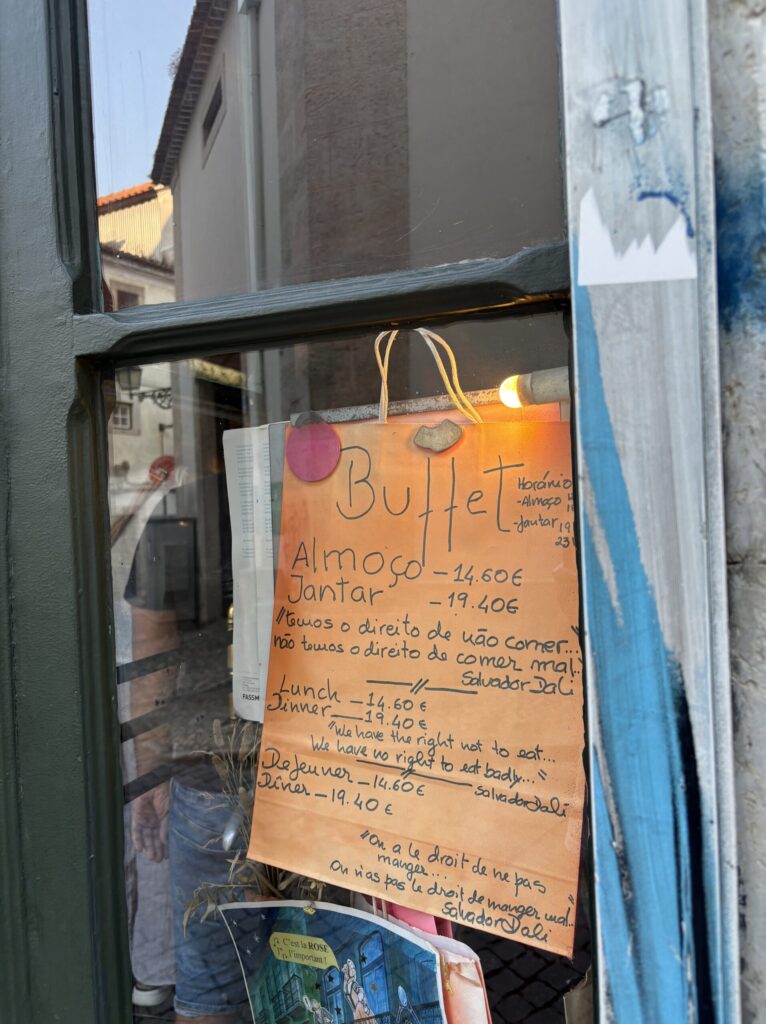 Buffet
Horário
-Almoço
-Jantar 19
23
Almoço - 14.60€
Jantar - 19.40€
"temos o direito de não comer...
não temos o direito de comer mal."
Salvador Dali
Lunch - 14.60€
Dinner - 19.40€
"We have the right not to eat...
We have no right to eat badly..."
Salvador Dali
Dejeuner - 14.60€
Dîner - 19.40€
"On a le droit de ne pas
manger...
On n'as pas le droit de manger mal..."
Salvador Dali
PASSM
C'est la ROSE
l'important!